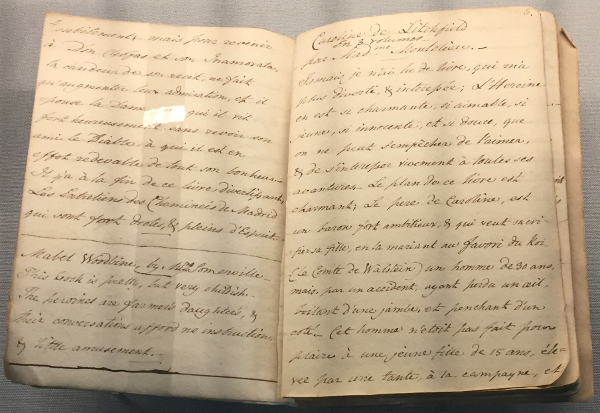 subitement, mais pour revenir
à Don Cléofas et son Inamorata,
la candeur de son récit, ne fait
qu'augmenter leur admiration, et il
épouse la Dame qui il vit
fort heureusement, sans revoir son
ami le Diable à qui il est en
effet redevable de tout son bonheur.
Il y'a à la fin de ce livre divertissant,
Les Entretiens des Cheminées de Madrid
qui sont fort droles, & pleins d'Esprit.
Mabel Woodbine, by Mrs Somerville
This book is pretty, but very childish.
The persones are farmer's daughters, &
their conversations afford no instruction,
& little amusement.
Caroline de Litchfield
en 3 volumes
par Madme Montolieu.
Jamais je n'ai lu de livre, qui m'a
plus diverté & intéressée; L'Heroine
en est si charmante, si aimable, si
jeune, si innocente et si douce, que
on ne peut s'empêcher de l'aimer,
& de s'intéresser vivement à toutes ses
avantures. Le plan de ce livre est
charmant; Le pere de Caroline, est
un baron fort ambitieux, & qui veut sacri-
fier sa fille, en la mariant au favori du Roi
(Le Comte de Walstein) un homme de 30 ans,
mais, par un accident, ayant perdu un œil
boitant d'une jambe, et penchant d'un
coté. Cet homme n'étoit pas fait pour
plaire à une jeune fille de 15 ans, éle-
vée par une tante, à la campagne, et